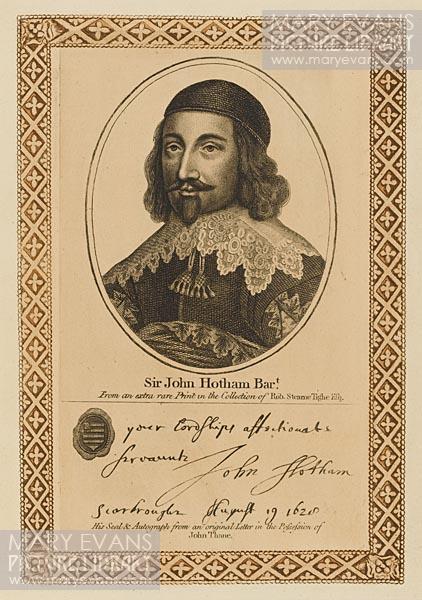 MARY EVANS
PICTURE LIBRARY
www.maryevans.com
Sir John Hotham Bar.t
From an extra rare Print in the Collection of Rob. Stearne Tighe Esq.
your Lordships affectionate
servaunte John Hotham
Scarbrough August 19 1628
His Seal & Autograph from an original Letter in the Possession of
John Thane.
MARY EVANS
PICTURE LIBRARY
www.maryevans.com